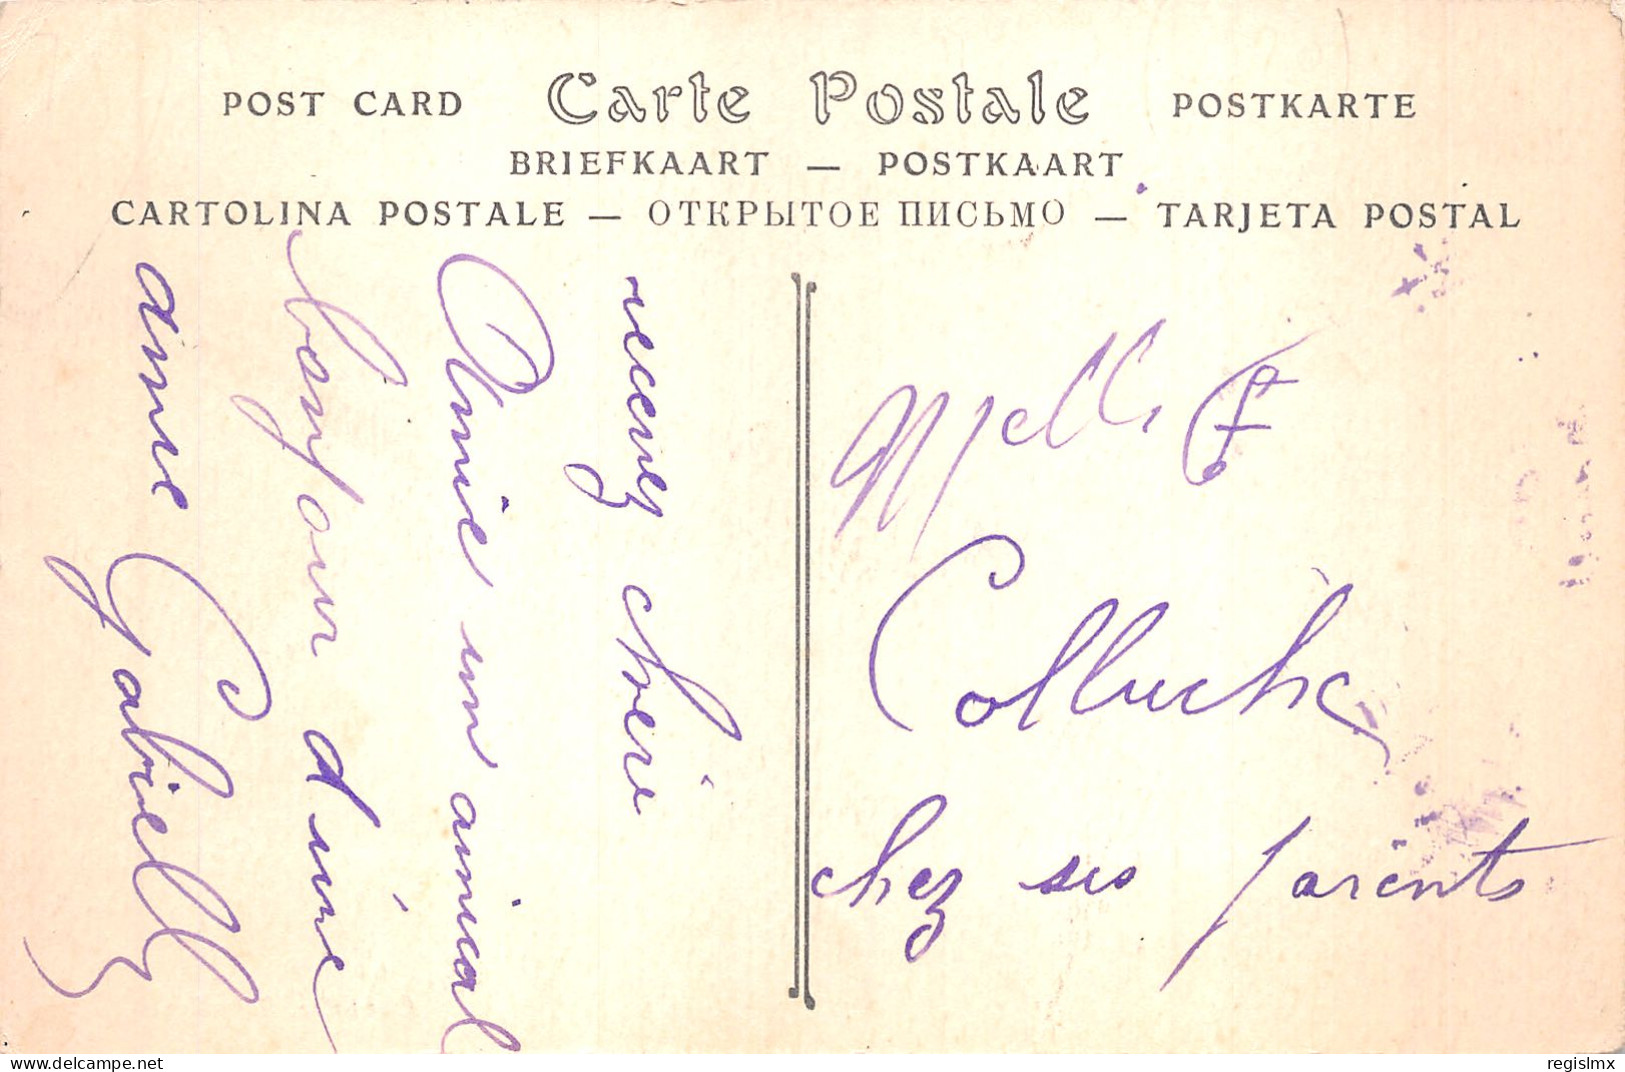 POST CARD Carte Postale POSTKARTE
BRIEFKAART — POSTKAART
CARTOLINA POSTALE — ОТКРЫТОЕ ПИСЬМО — TARJETA POSTAL
recevez chère
Amie un amical
bonjour d'une
amie Gabrielle
Melle F
Colluche
chez ses parents
www.delcampe.net
regislmx